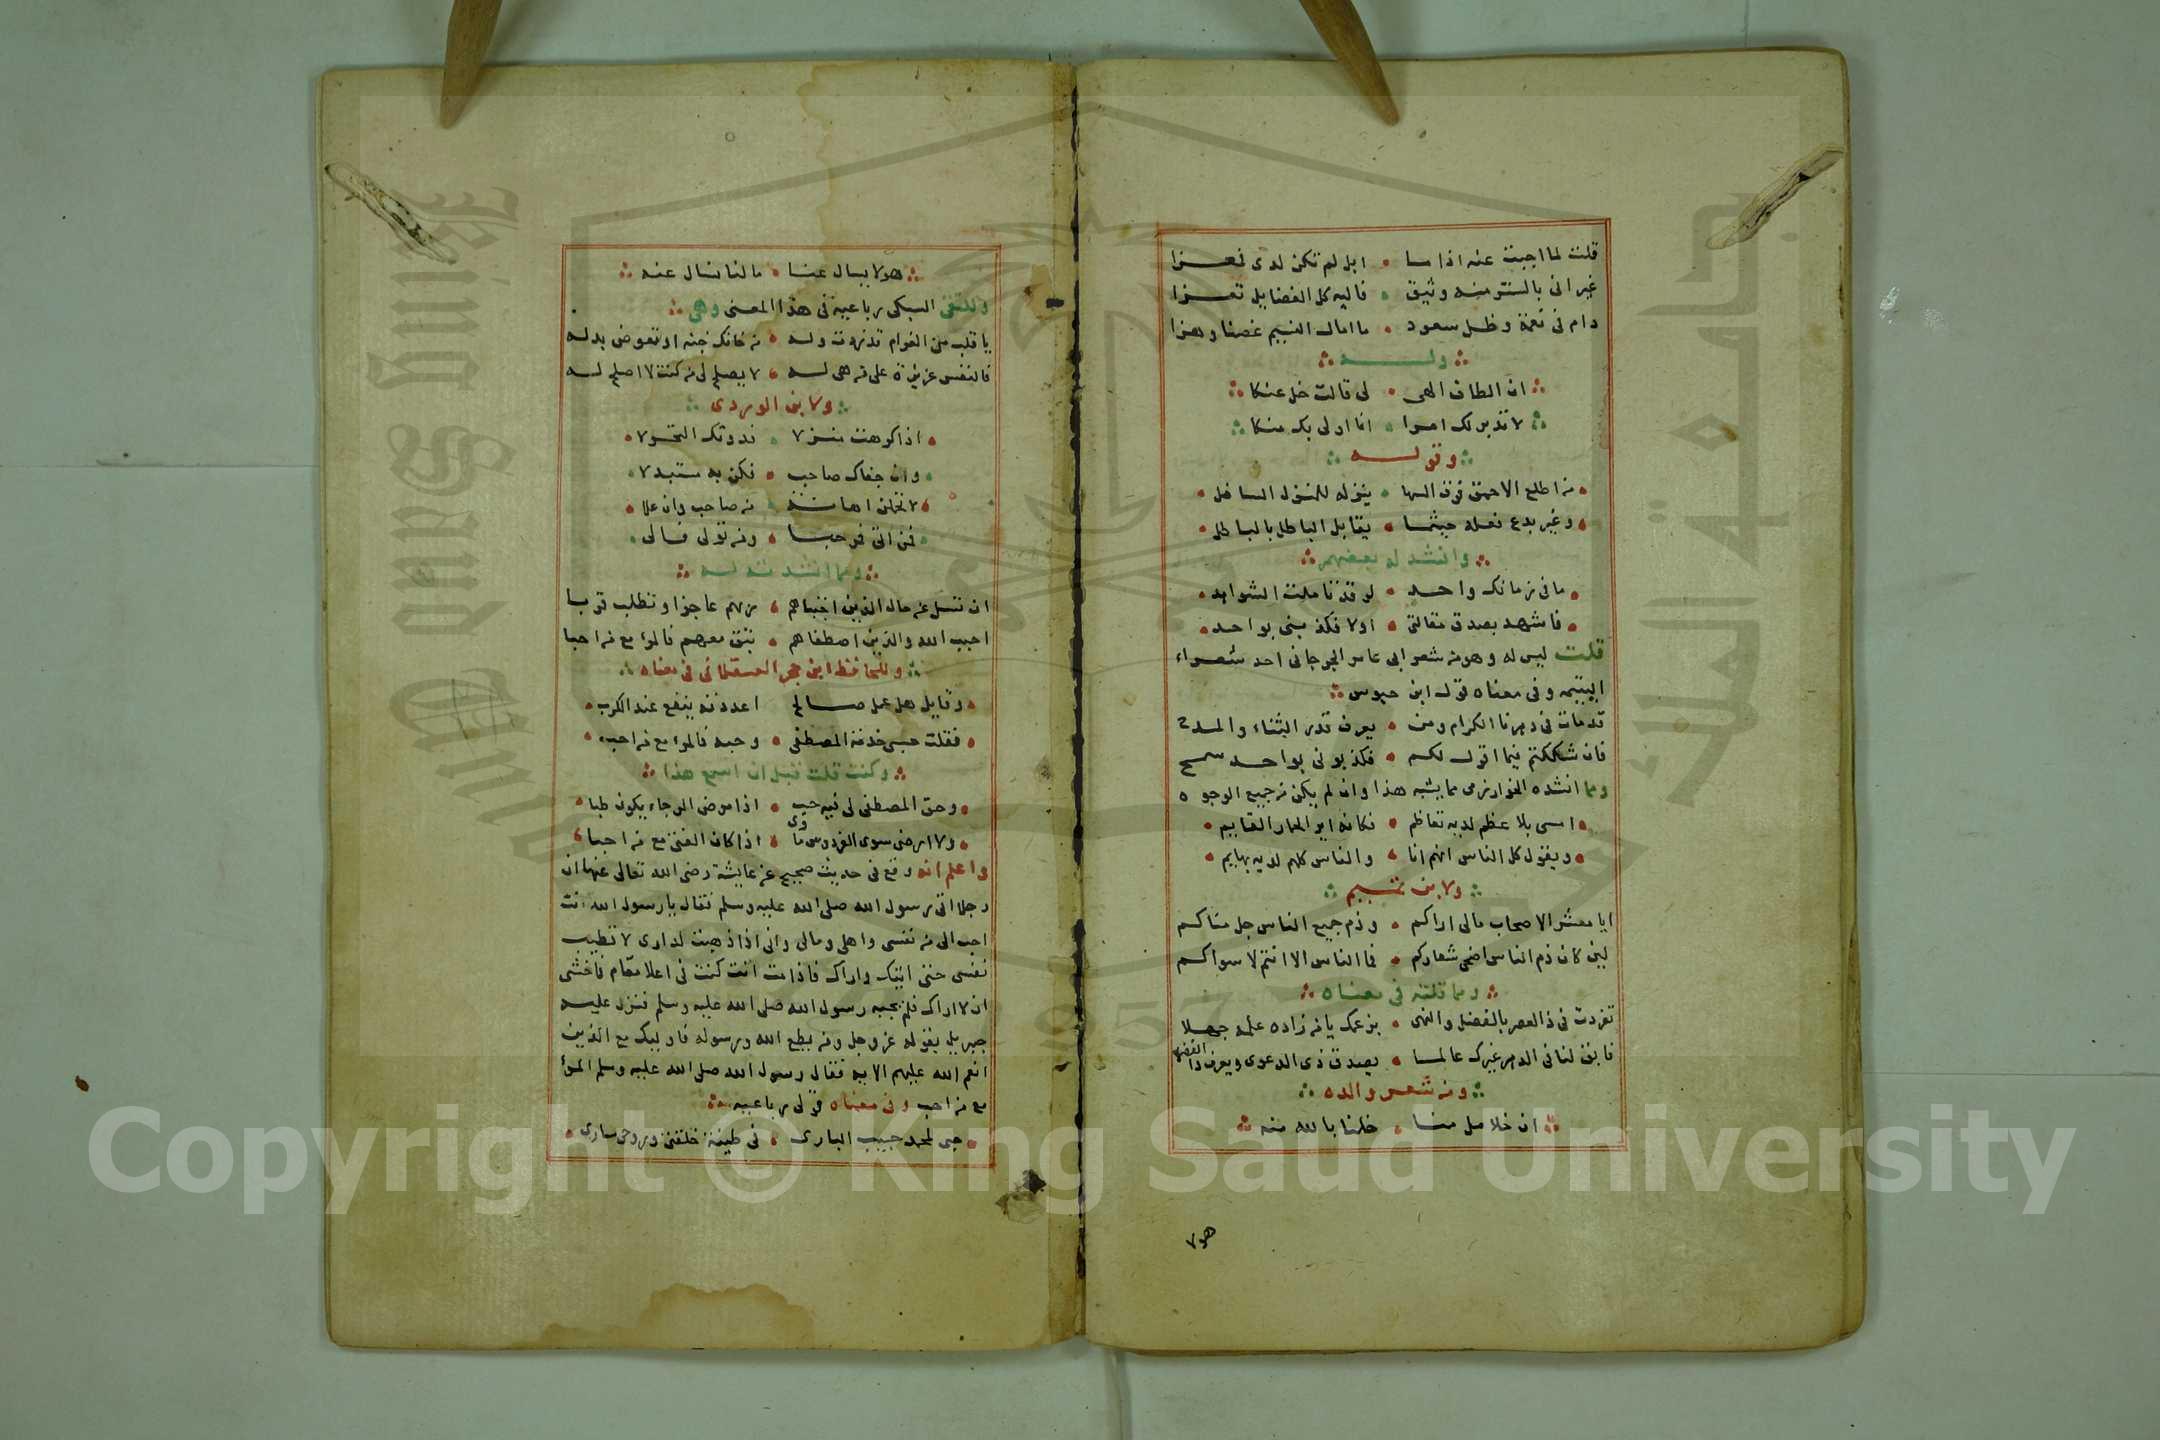 قلت لما اجبت عنه اذا ما • ابل لم تكن لدى فعزا
غير انى بالستر منه وثيق • فاليه كل الفضايل تعزا
دام فى نعمة وظل سعود • ما امال النسيم غصنا وهزا
وله
ان الطاف الهى • لى قالت خل عنكا
لا تدبر لك امرا • انا اولى بك منكا
وقوله
من اطلع الاحمق فوق السها • ينزله للمنزل السافل
وغير بدع فعله حيثما • يقابل الباطل بالباطل
وانشد له بعضهم
ما فى زمانك واحد • لو قد تاملت الشواهد
فاشهد بصدق مقالتى • اولا فكذبنى بواحد
قلت ليس له وهو من شعر ابى عامر الجرجانى احد شعراء
اليتيمه وفى معناه قول ابن حيوس
قد مات فى دهرنا الكرام ومن • يعرف قدر الثناء والمدح
فان شككتم فيما اقول لكم • فكذبونى بواحد سمح
ومما انشده الخوارزمى مما يشبه هذا وان لم يكن من جميع الوجوه
امسى بلا عظم لديه تعاظم • فكانه اير الحمار القايم
ويقول كل الناس انهم انا • والناس كلهم لديه بهايم
ولابن تميم
ايا معشر الاصحاب مالى اراكم • وذم جميع الناس جل مناكم
لين كان ذم الناس اضحى شعاركم • فما الناس الا انتم لا سواكم
ومما قلته فى معناه
تفردت فى ذا العصر بالفضل والنهى • بزعمك يا من زاده علمه جهلا
فابق لنا فى الدهر غيرك عالما • يصدق ذى الدعوى ويعرف ذا الفضلا
ومن شعر والده
ان خلا مل منا • خلنا بالله منه
هولا
هو لا يسال عنا • ما لنا نسال عنه
وللتقى السبكى رباعية فى هذا المعنى وهى
يا قلب من الغرام قد زدت وله • من خانك خنه او تعوض بدله
فالنفس عزيزة على من هى له • لا يصلح لى من كنت لا اصلح له
ولابن الوردى
اذا كرهت منزلا • فدونك التحولا
وان جفاك صاحب • فكن به مستبدلا
لا تحملن اهانة • من صاحب وان علا
فمن اتى فمرحبا • ومن تولى فالى
ومما انشدته له
ان تسل عن حال الذين اجتباهم • ربهم عاجزا وتطلب قربا
احبب الله والذين اصطفاهم • تبق معهم فالمرء مع من احبا
وللحافظ ابن حجر العسقلانى فى معناه
وقايل هل عمل صالح اعددته ينفع عند الكرب
فقلت حسبى خدمة المصطفى • وحبه فالمرء مع من احب
وكنت قلت قبل ان اسمع هذا
وحق المصطفى لى فيه حب • اذا مرض الرجاء يكون طبا
ولا ارضى سوى الفردوس ماوى • اذا كان الفتى مع من احبا
واعلم انه وقع فى حديث صحيح عن عايشة رضى الله تعالى عنها ان
رجلا اتى رسول الله صلى الله عليه وسلم فقال يا رسول الله انت
احب الى من نفسى واهلى ومالى وانى اذا ذهبت لدارى لا تطيب
نفسى حتى اتيك واراك فاذا مت انت كنت فى اعلا مقام فاخشى
ان لا اراك فلم يجبه رسول الله صلى الله عليه وسلم فنزل عليه
جبريل بقوله عز وجل ومن يطع الله ورسوله فاوليك مع الذين
انعم الله عليهم الاية فقال رسول الله صلى الله عليه وسلم المرء
مع من احب وفى معناه قولى رباعيه
حبى لمحمد حبيب البارى • فى طينة خلقتى وروحى سارى
Copyright © King Saud University